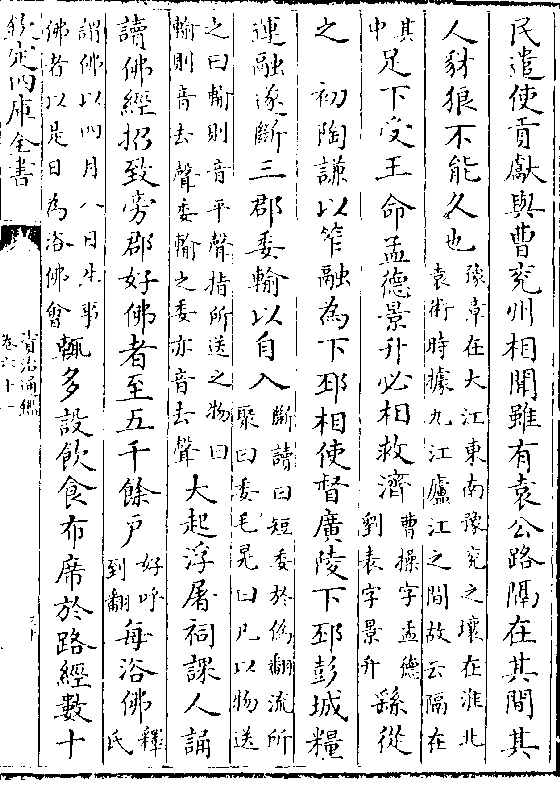 民遣使貢獻與曹兖州相聞雖有袁公路隔在其間其
人豺狼不能久也
豫章在大江東南豫兖之壤在淮北
袁術時據九江廬江之間故云隔在
其
中
足下受王命孟德景升必相救濟
曹操字孟德
劉表字景升
繇從
之 初陶謙以笮融為下邳相使督廣陵下邳彭城糧
運融遂斷三郡委輸以自入
斷讀曰短委於偽翻流所
聚曰委毛晃曰凡以物送
之曰輸則音平聲指所送之物曰
輸則音去聲委輸之委亦音去聲
大起浮屠祠課人誦
讀佛經招致旁郡好佛者至五千餘户
好呼
到翻
每浴佛
釋
氏
謂佛以四月八日生事
佛者以是日為浴佛會
輒多設飲食布席於路經數十
欽定四庫全書
資治通鑑
卷六十一